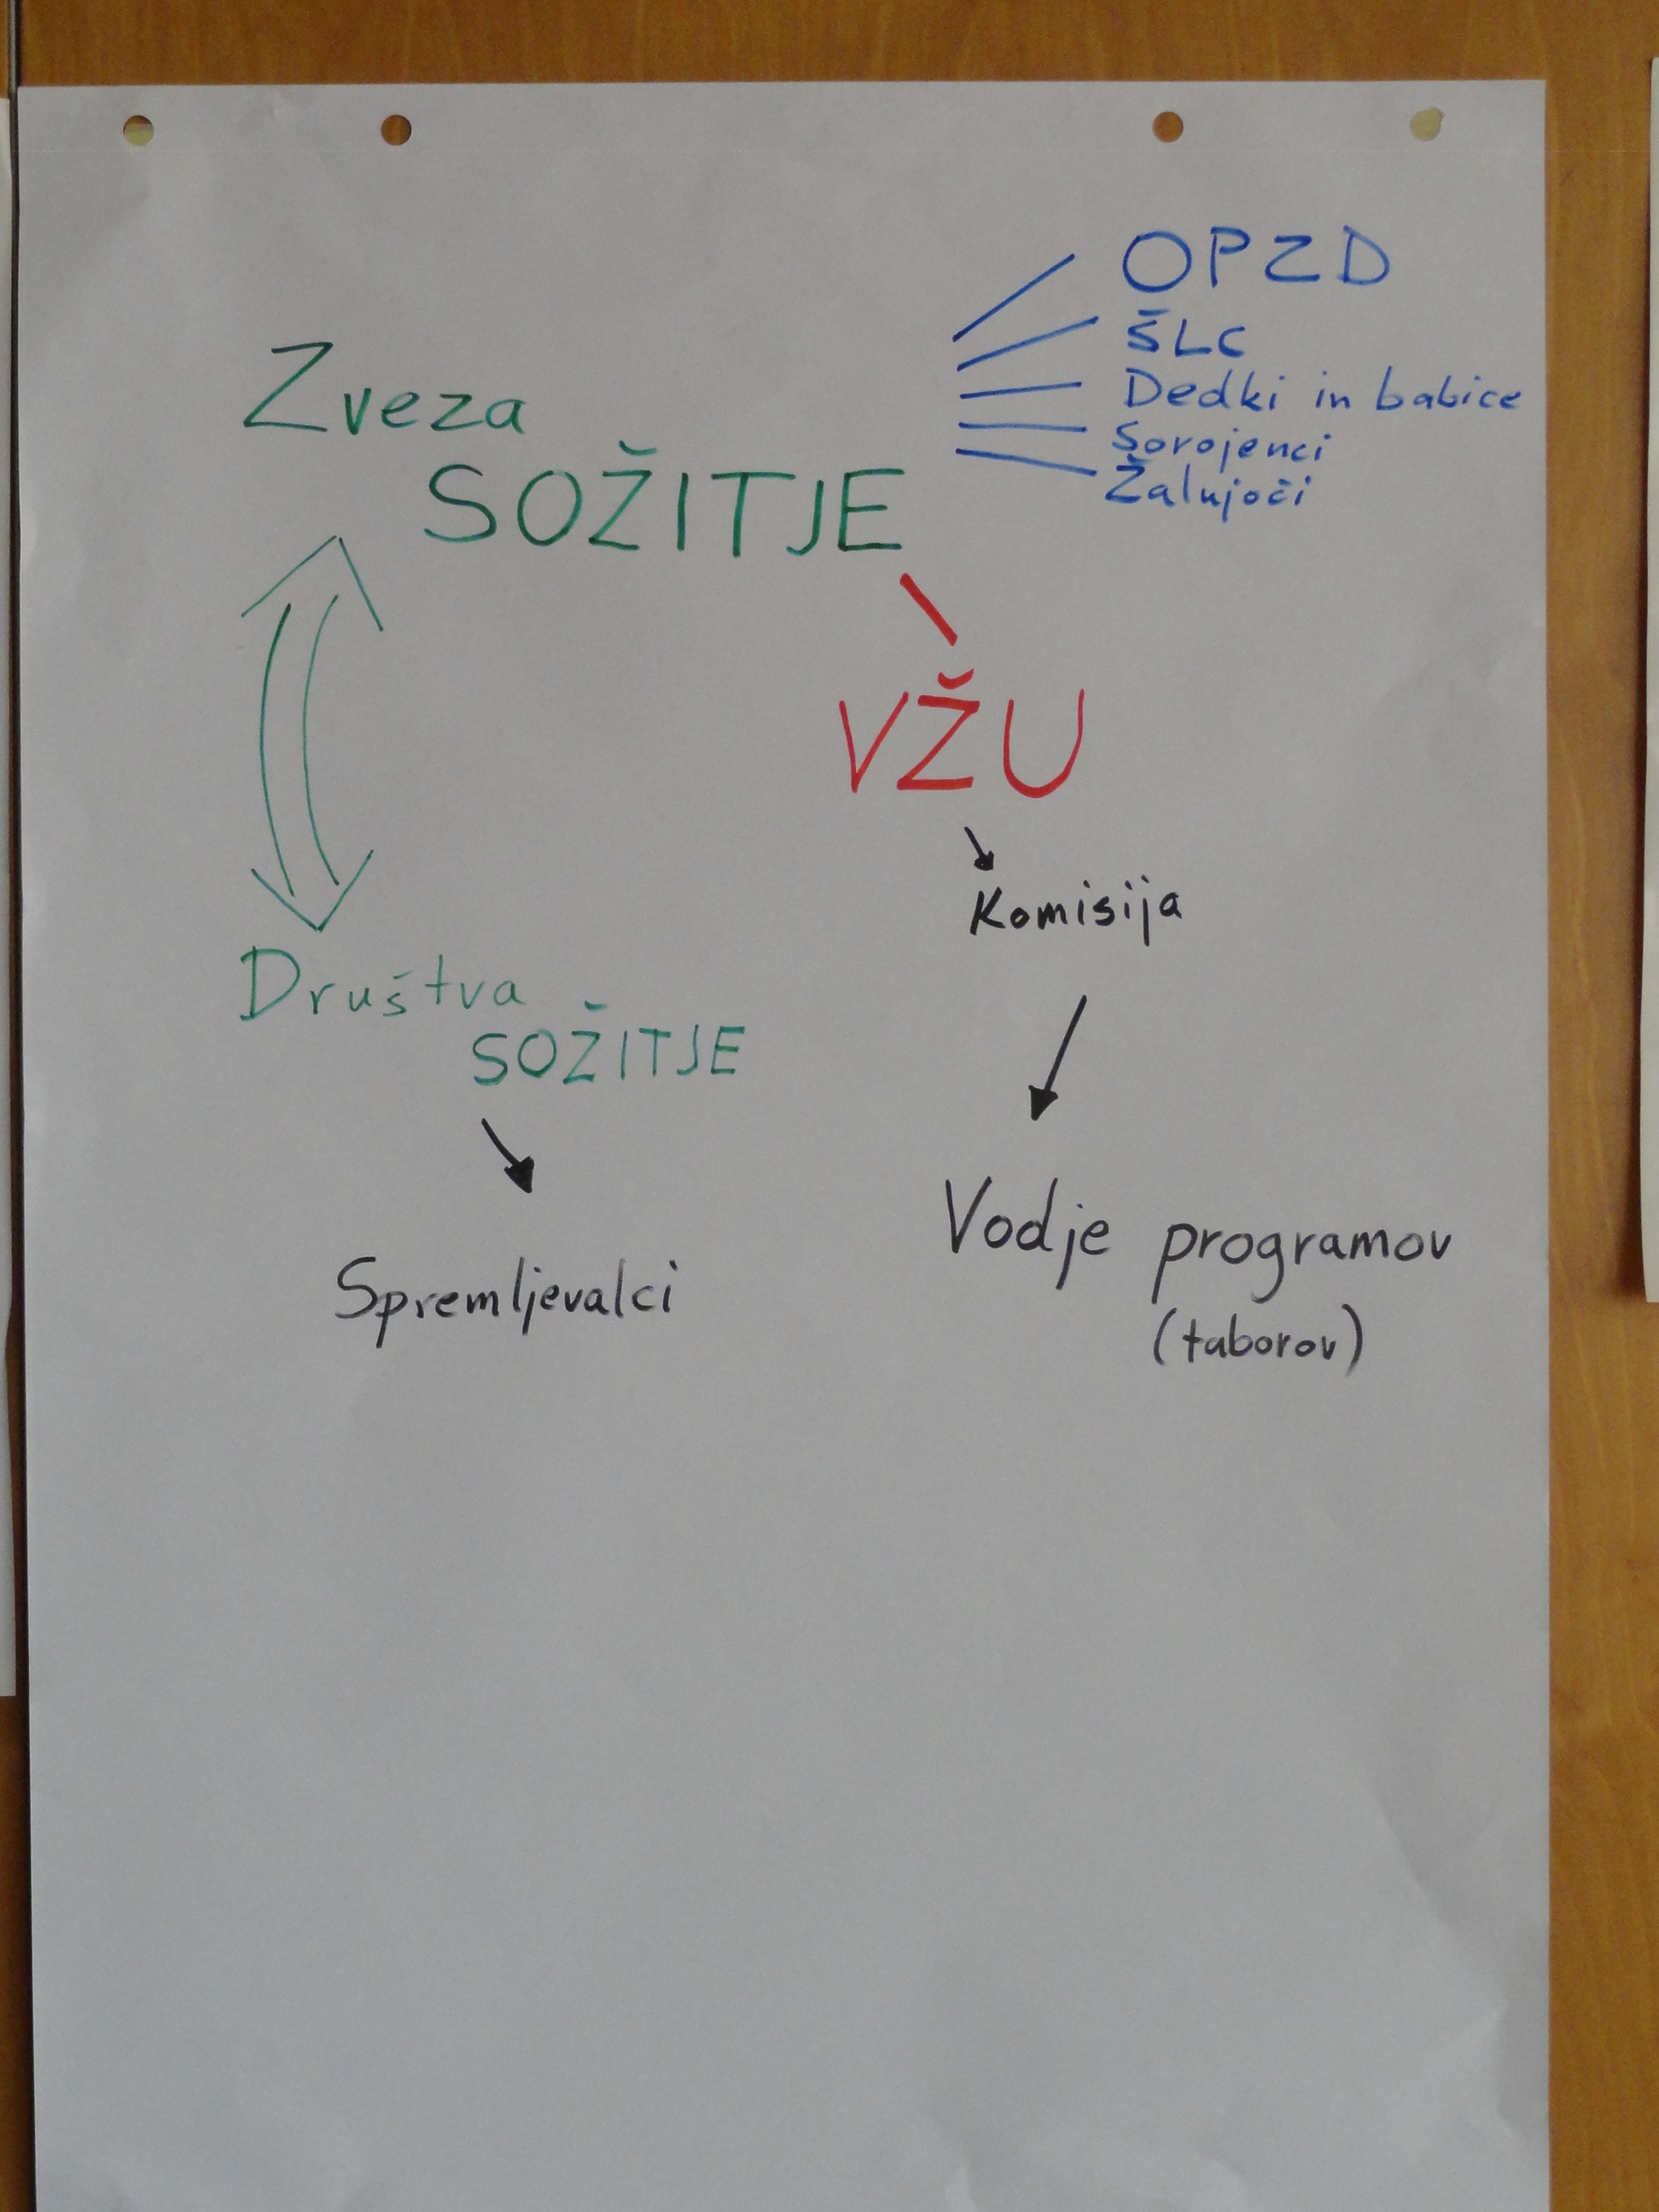 Zveza
SOŽITJE
OPZD
ŠLC
Dedki in babice
Sorojenci
Žalujoči
VŽU
Komisija
Društva
SOŽITJE
Spremljevalci
Vodje programov
(taborov)